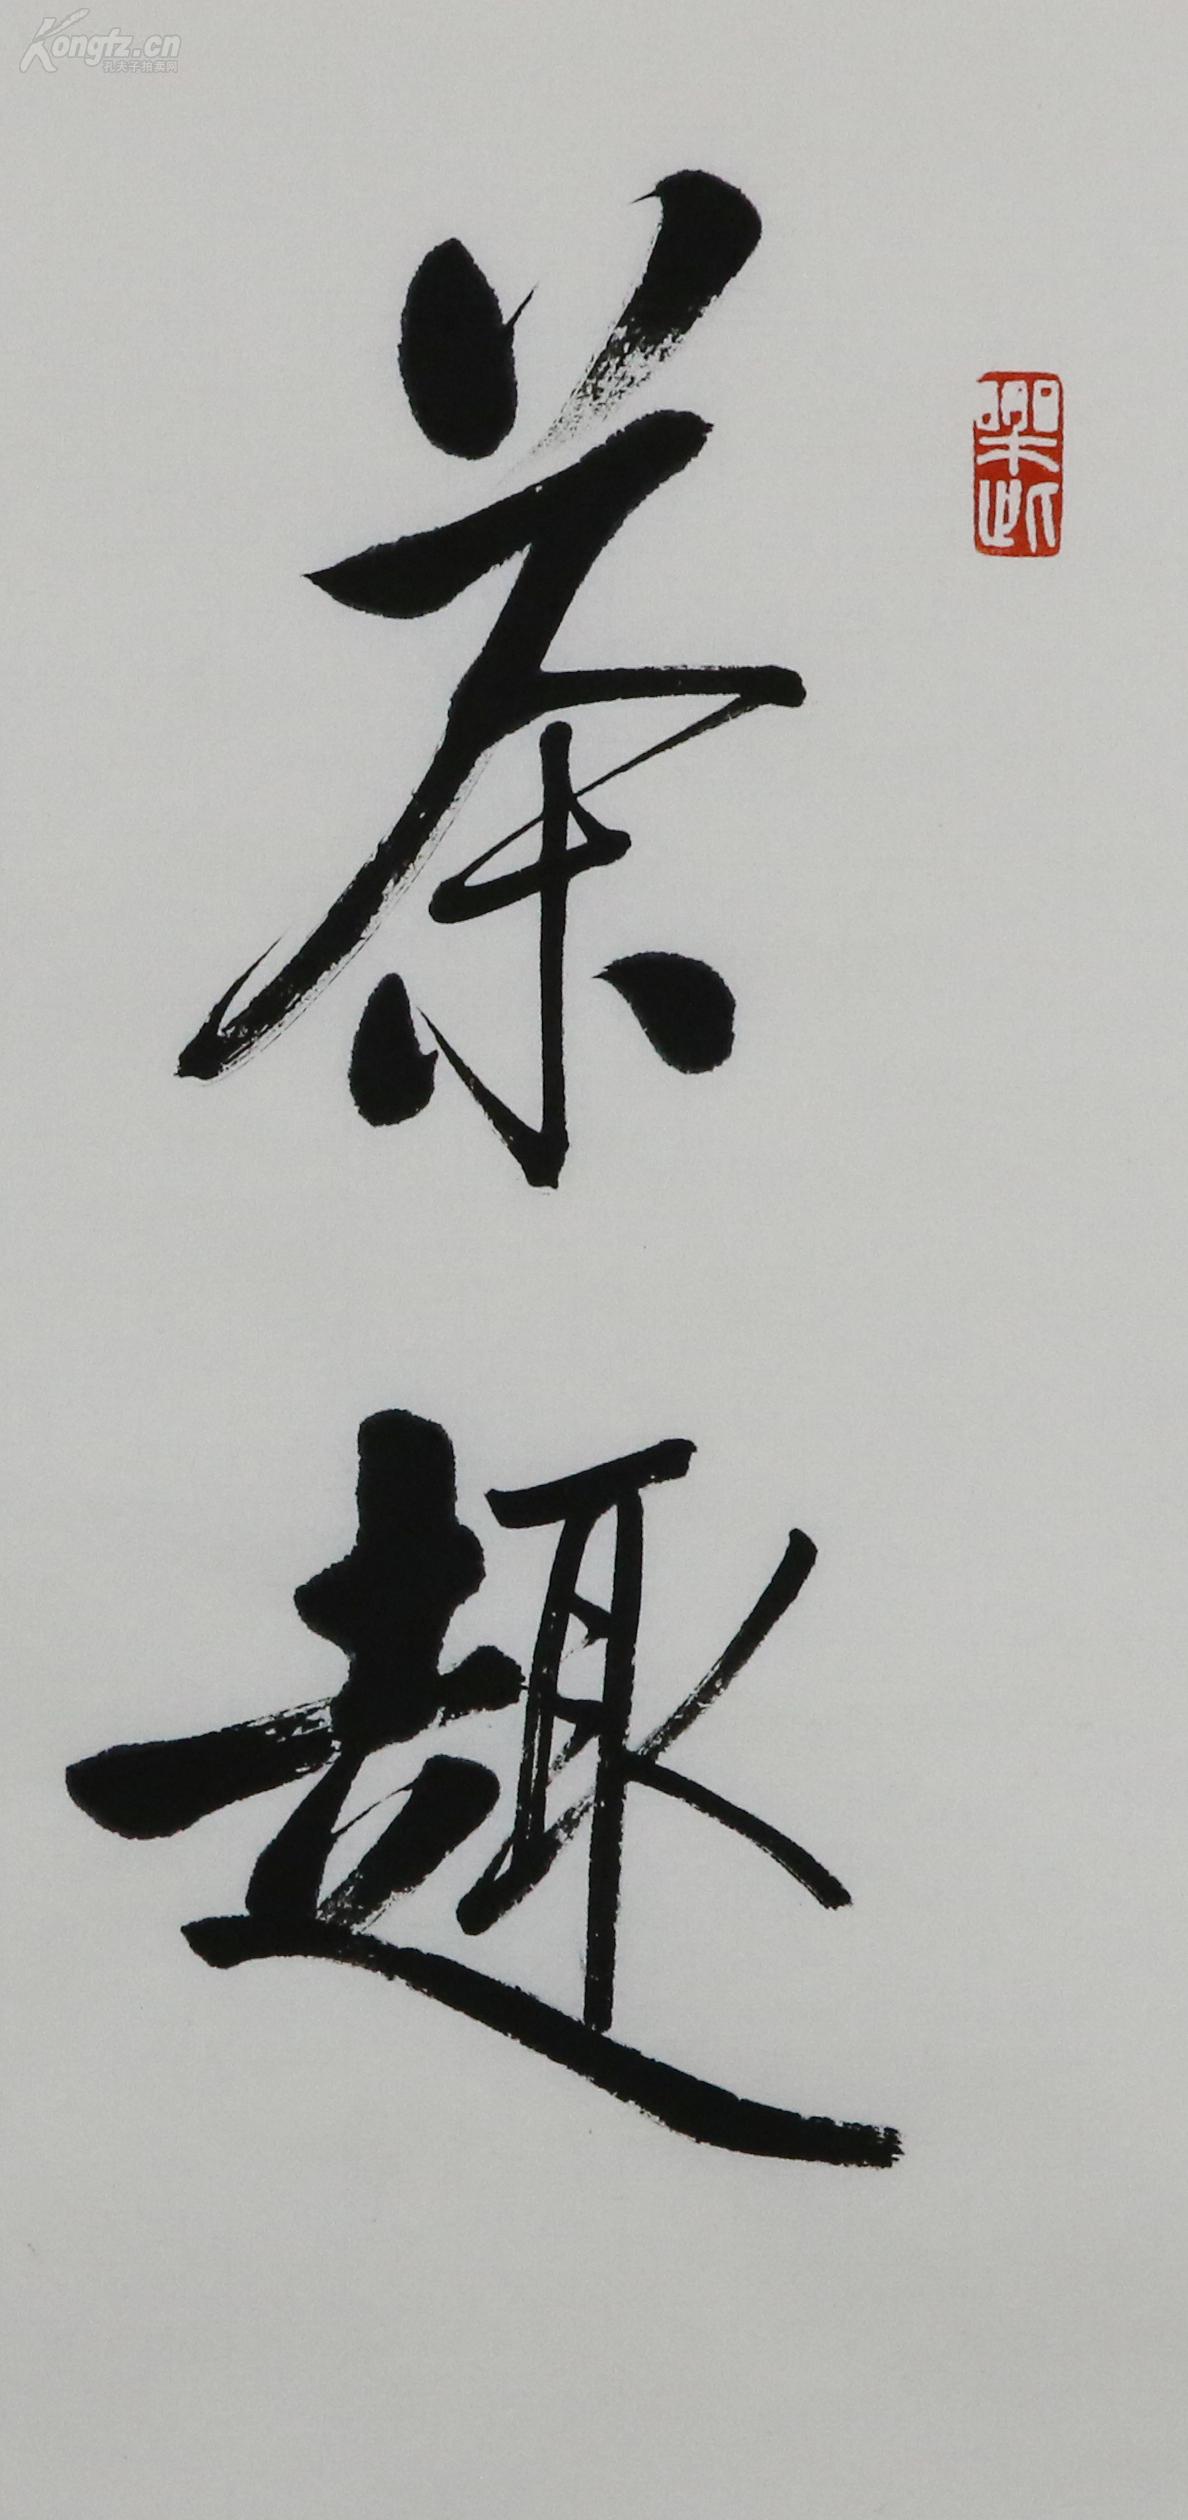 Kongfz.cn
孔夫子拍卖网
茶
趣